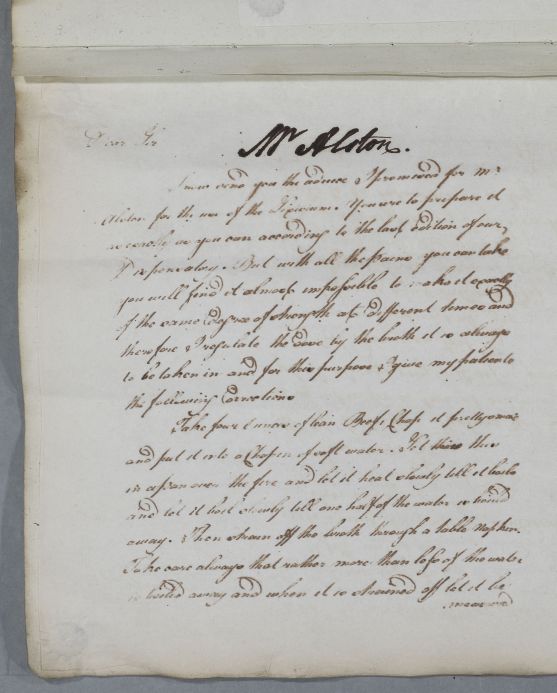 Dear Sir
Mr Alston.
I now send you the advice I promised for Mr
Alston for the use of the Lixivium. You are to prepare it
as exactly as you can according to the last edition of our
Dispensatory. But with all the pains you can take
you will find it almost impossible to make it exactly
of the same degree of strength at different times and
therefore I regulate the dose by the broth it is always
to be taken in and for this purpose I give my patients
the following directions
Take four ounces of lean Beef. Chop it pretty small
and put it into a Chopin of soft water. Set this
in a pan over the fire and let it heat slowly till it boils
and let it boil slowly till one half of the water is boiled
away. Then strain off the broth through a table Napkin.
Take care always that rather more than less of the water
is boiled away and when it is strained off let it be
measured